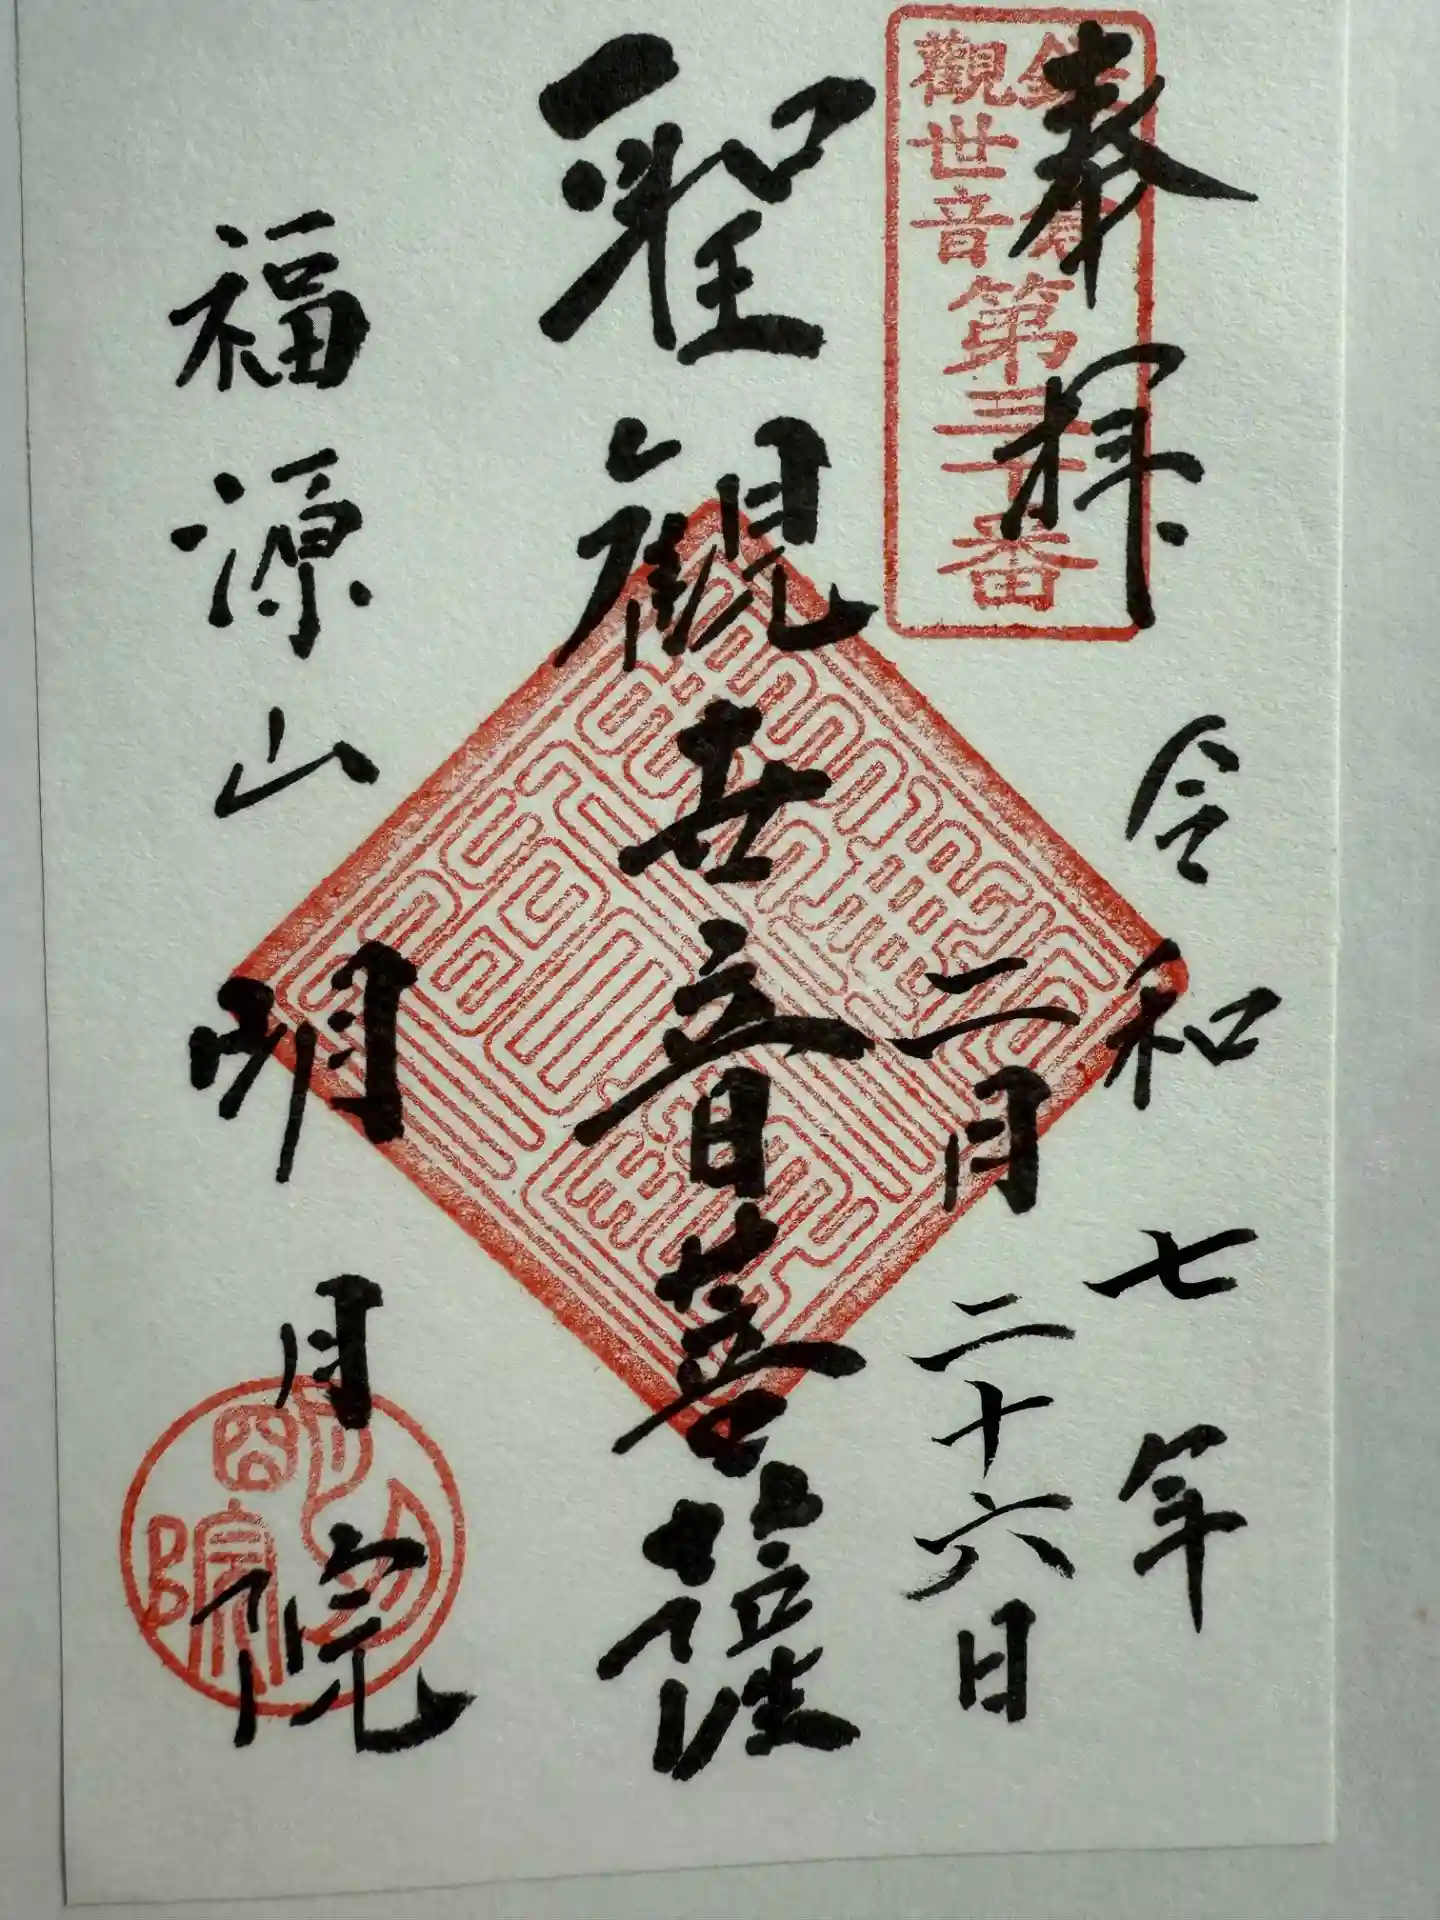 奉拝
令和七年
二月二十六日
鎌倉
觀世音
第三十番
聖観世音菩薩
福源山
明月院
明月院